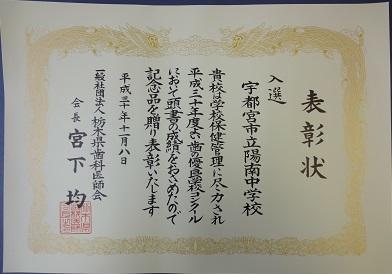 表彰状
入選
宇都宮市立陽南中学校
貴校は学校保健管理に尽力され
平成三十年度よい歯の優良学校コンクール
において頭書の成績をおさめたので
記念品を贈り表彰いたします
平成三十年十一月八日
一般社団法人栃木県歯科医師会
会長 宮下均